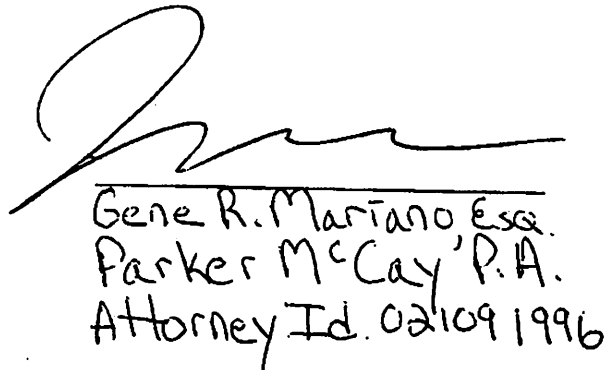 Gene R. Mariano Esq.
Parker McCay P.A.
Attorney Id. 021091996